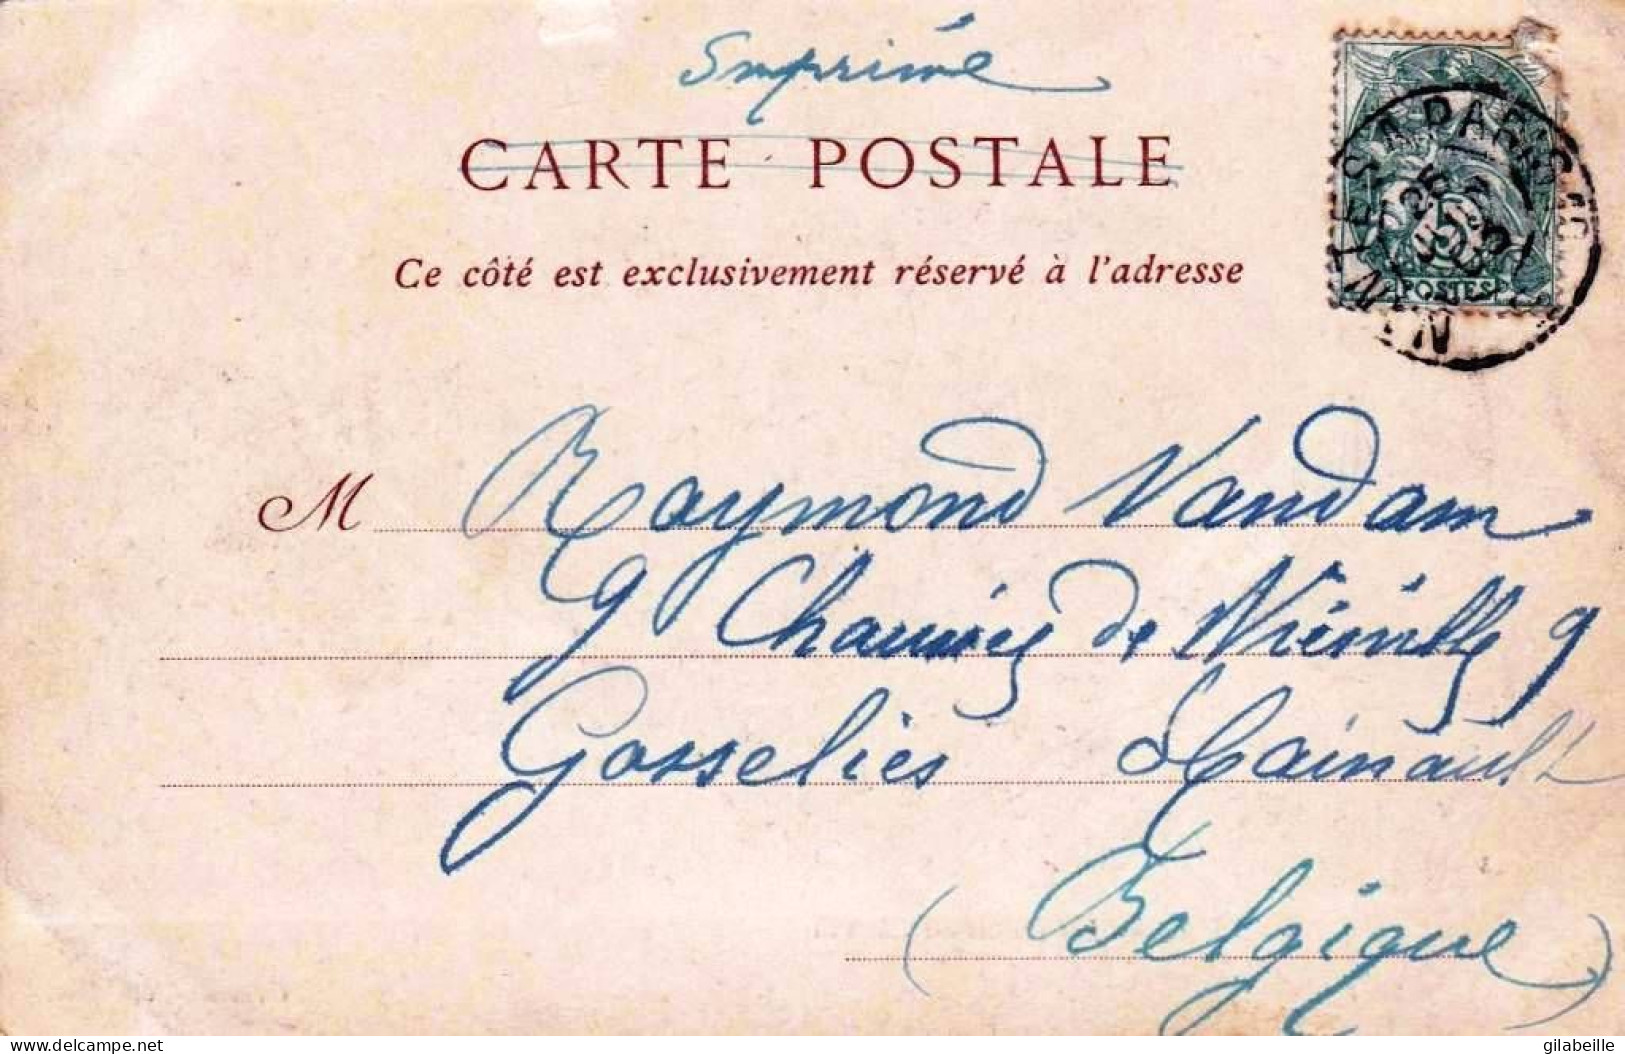 Imprimé
CARTE POSTALE
Ce côté est exclusivement réservé à l'adresse
MANTES A PARIS
5
POSTES
M Raymond Vandam
9 Chaussée de Viéville 9
Gosselies Hainault
(Belgique)
gilabeille